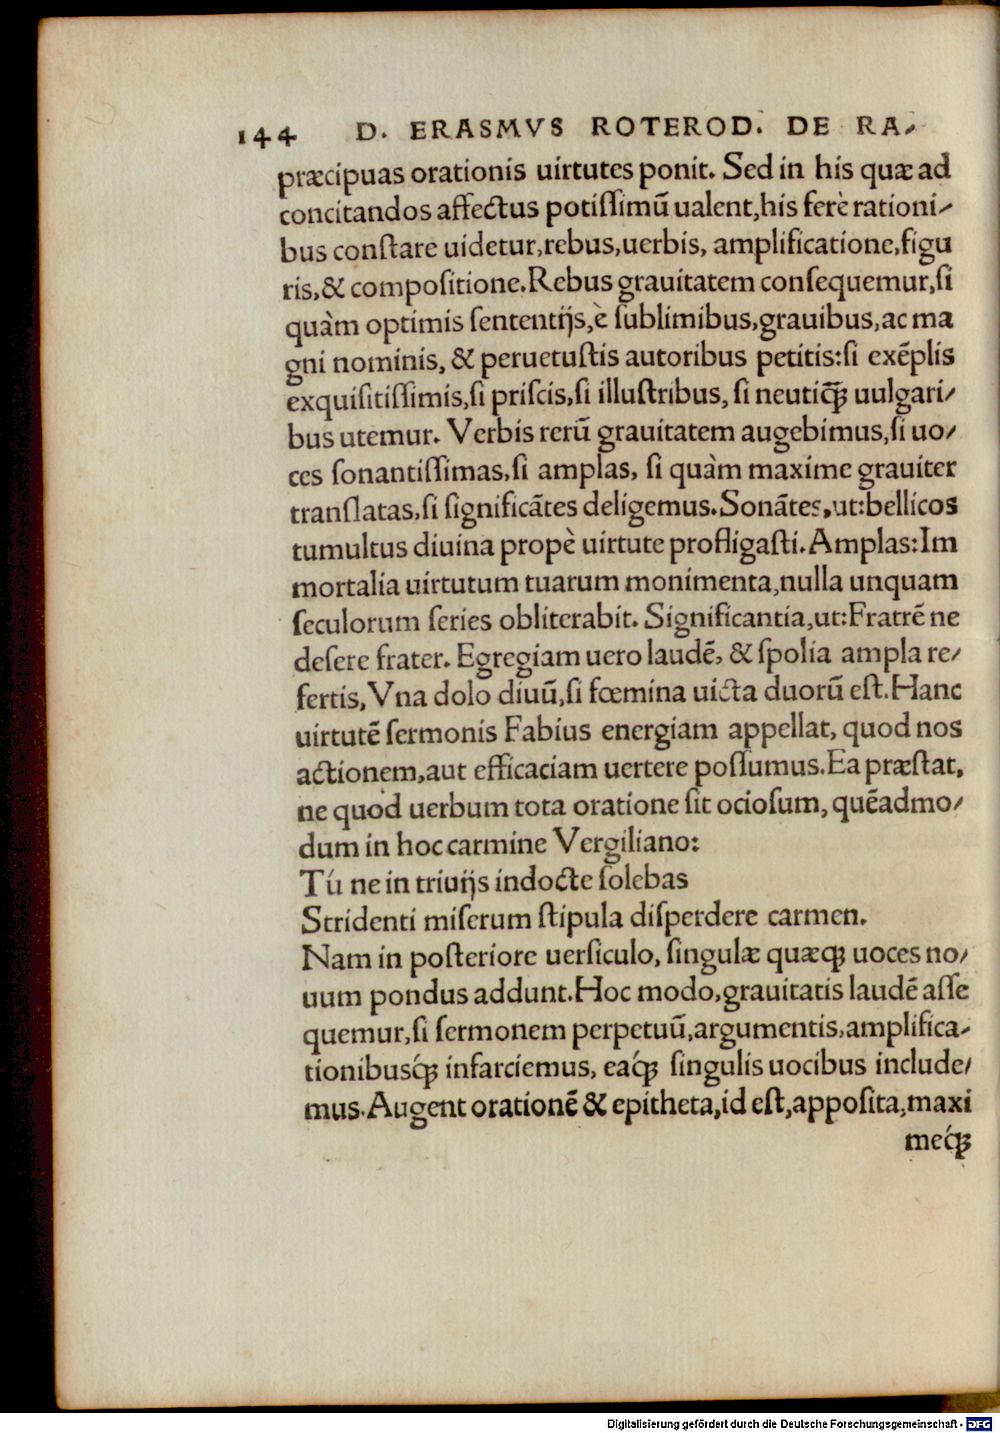 144 D. ERASMVS ROTEROD. DE RA⸗
præcipuas orationis uirtutes ponit. Sed in his quæ ad
concitandos affectus potiſſimū ualent,his ferè rationi⸗
bus conſtare uidetur,rebus,uerbis, amplificatione,figu
ris,& compoſitione.Rebus grauitatem conſequemur,ſi
quàm optimis ſententijs,è ſublimibus,grauibus,ac ma
gni nominis, & peruetuſtis autoribus petitis:ſi exēplis
exquiſitiſſimis,ſi priſcis,ſi illuſtribus, ſi neutiq̃ȝ uulgari⸗
bus utemur. Verbis rerū grauitatem augebimus,ſi uo⸗
ces ſonantiſſimas,ſi amplas, ſi quàm maxime grauiter
tranſlatas,ſi ſignificātes deligemus.Sonātes,ut:bellicos
tumultus diuina propè uirtute profligaſti.Amplas:Im
mortalia uirtutum tuarum monimenta,nulla unquam
ſeculorum ſeries obliterabit. Significantia,ut:Fratrē ne
deſere frater. Egregiam uero laudē, & ſpolia ampla re⸗
fertis, Vna dolo diuū,ſi fœmina uicta duorū eſt.Hanc
uirtutē ſermonis Fabius energiam appellat, quod nos
actionem,aut efficaciam uertere poſſumus.Ea præſtat,
ne quod uerbum tota oratione ſit ocioſum, quēadmo⸗
dum in hoc carmine Vergiliano:
Tú ne in triuijs indocte ſolebas
Stridenti miſerum ſtipula diſperdere carmen.
Nam in poſteriore uerſiculo, ſingulæ quæqȝ uoces no⸗
uum pondus addunt.Hoc modo,grauitatis laudē aſſe
quemur,ſi ſermonem perpetuū,argumentis,amplifica⸗
tionibusq́ȝ infarciemus, eaq́ȝ ſingulis uocibus include⸗
mus.Augent orationē & epitheta,id eſt,appoſita,maxi
meq́ȝ
Digitalisierung gefördert durch die Deutsche Forschungsgemeinschaft - DFG